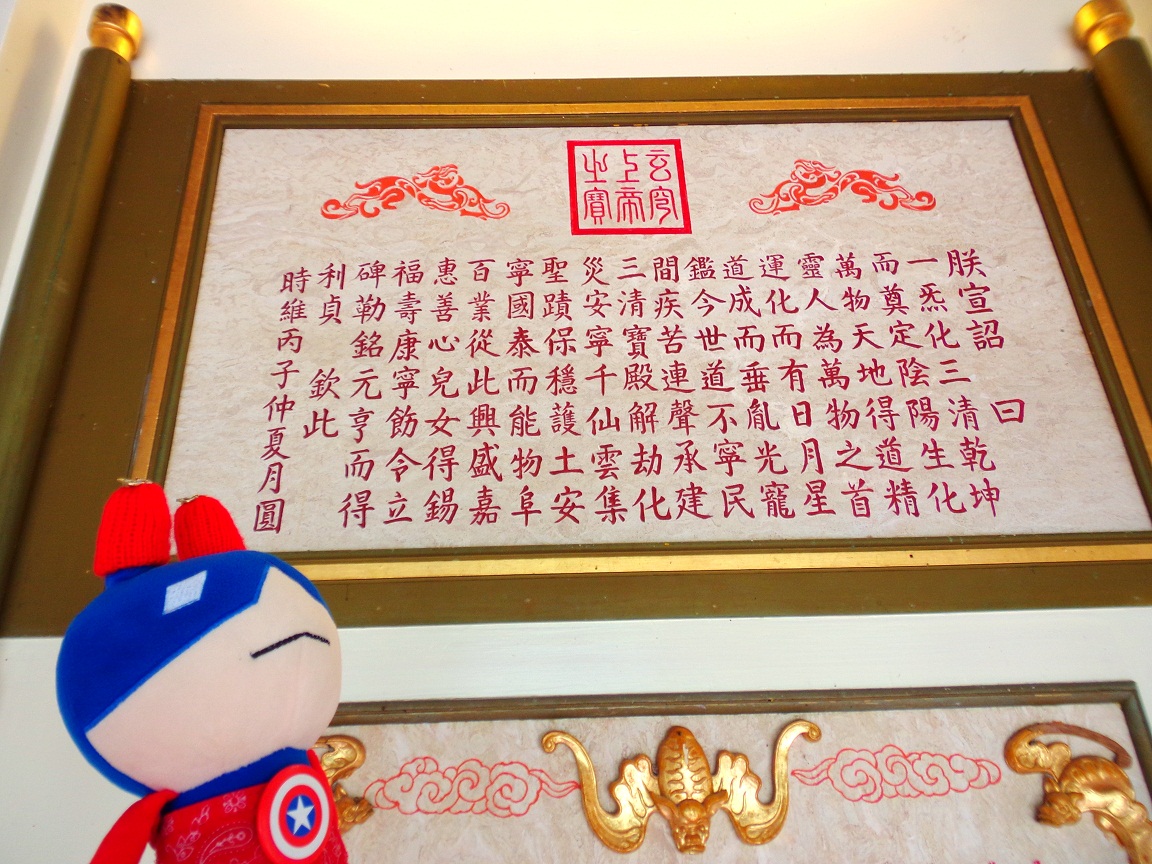 玄穹
上帝
之寶
朕宣詔 曰
一炁化三清乾坤
而奠定陰陽生化
萬物天地得道精
靈人為萬物之首
運化而有日月星
道成而垂胤光寵
鑑今世道不寧民
間疾苦連聲承建
三清寶殿解劫化
災安寧千仙雲集
聖蹟保穩護土安
寧國泰而能物阜
百業從此興盛嘉
惠善心兒女得錫
福壽康寧飭令立
碑勒銘元亨而得
利貞 欽此
時維丙子仲夏月圓